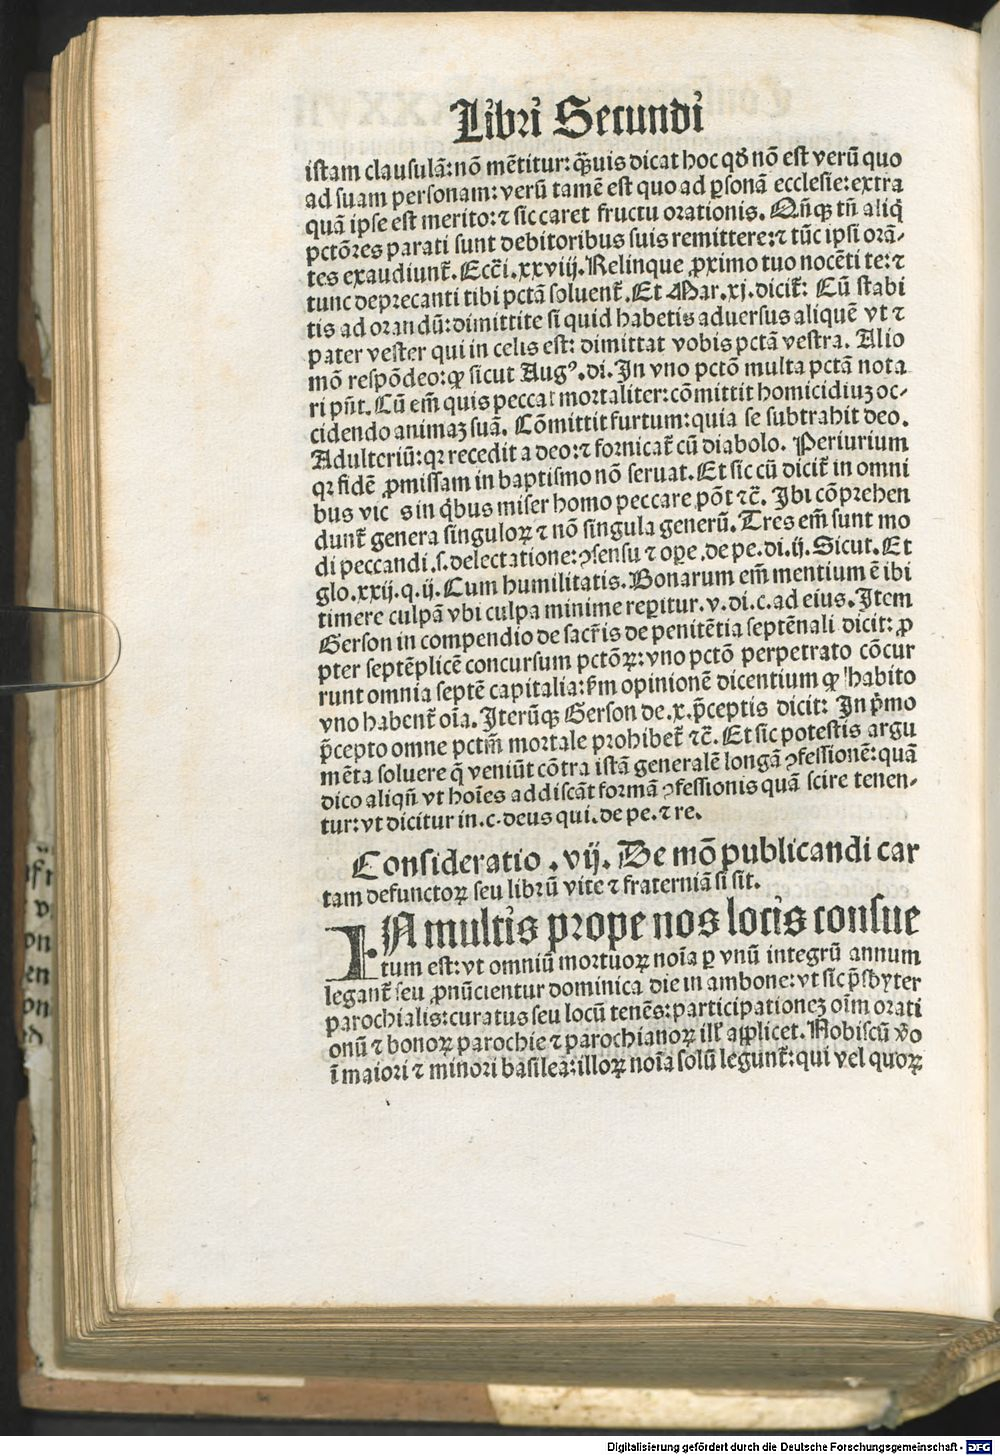 Libri Secundi
istam clausulā: nō mētitur: q̄uis dicat hoc qď nō est verū quo
ad suam personam: verū tamē est quo ad ꝑsonā ecclesie: extra
quā ipse est merito: ⁊ sic caret fructu orationis. Qn̄qꝫ tn̄ aliq̇
pctōres parati sunt debitoribus suis remittere: ⁊ tūc ipsi orā-
tes exaudiunt̄. Ecc̄i. xxviij. Relinque ꝓximo tuo nocēti te: ⁊
tunc deprecanti tibi pctā soluent̄. Et Mar. xj. dicit̄: Cū stabi
tis ad orandū: dimittite si quid habetis aduersus aliquē vt ⁊
pater vester qui in celis est: dimittat vobis pctā vestra. Alio
mō respōdeo: ꝙ sicut Augꝰ. di. In vno pctō multa pctā nota
ri pn̄t. Cū em̄ quis peccat mortaliter: cōmittit homicidiuꝫ oc-
cidendo animaꝫ suā. Cōmittit furtum: quia se subtrahit deo.
Adulteriū: qꝛ recedit a deo: ⁊ fornicat̄ cū diabolo. Periurium
qꝛ fidē ꝓmissam in baptismo nō seruat. Et sic cū dicit̄ in omni
bus vic s in q̇bus miser homo peccare pōt ⁊c̄. Ibi cōprehen
dunt̄ genera singuloꝝ ⁊ nō singula generū. Tres em̄ sunt mo
di peccandi .s. delectatione: ꝯsensu ⁊ oꝑe. de pe. di. ij. Sicut. Et
glo. xxij. q. ij. Cum humilitatis. Bonarum em̄ mentium ē ibi
timere culpā vbi culpa minime reꝑitur. v. di. c. ad eius. Item
Gerson in compendio de sacr̄is de penitētia septēnali dicit: ꝓ
pter septēplicē concursum pctōꝝ: vno pctō perpetrato cōcur
runt omnia septē capitalia: s̄m opinionē dicentium ꝙ habito
vno habent̄ oīa. Iterūqꝫ Gerson de .x. p̄ceptis dicit: In p̄mo
p̄cepto omne pctm̄ mortale prohibet̄ ⁊c̄. Et sic potestis argu
mēta soluere q̄ veniūt cōtra istā generalē longā ꝯfessionē: quā
dico aliqn̄ vt hoīes addiscāt formā ꝯfessionis quā scire tenen-
tur: vt dicitur in .c. deus qui. de pe. ⁊ re.
Consideratio .vij. De mō publicandi car
tam defunctoꝝ seu librū vite ⁊ fraterniā si sit.
IN multis prope nos locis consue
tum est: vt omniū mortuoꝝ noīa ꝑ vnū integrū annum
legant̄ seu ꝓnūcientur dominica die in ambone: vt sic p̄sbyter
parochialis: curatus seu locū tenēs: participationeꝫ oīm orati
onū ⁊ bonoꝝ parochie ⁊ parochianoꝝ ill̄ applicet. Nobiscū v̄o
ī maiori ⁊ minori basilea: illoꝝ noīa solū legunt̄: qui vel quoꝝ
Digitalisierung gefördert durch die Deutsche Forschungsgemeinschaft - DFG